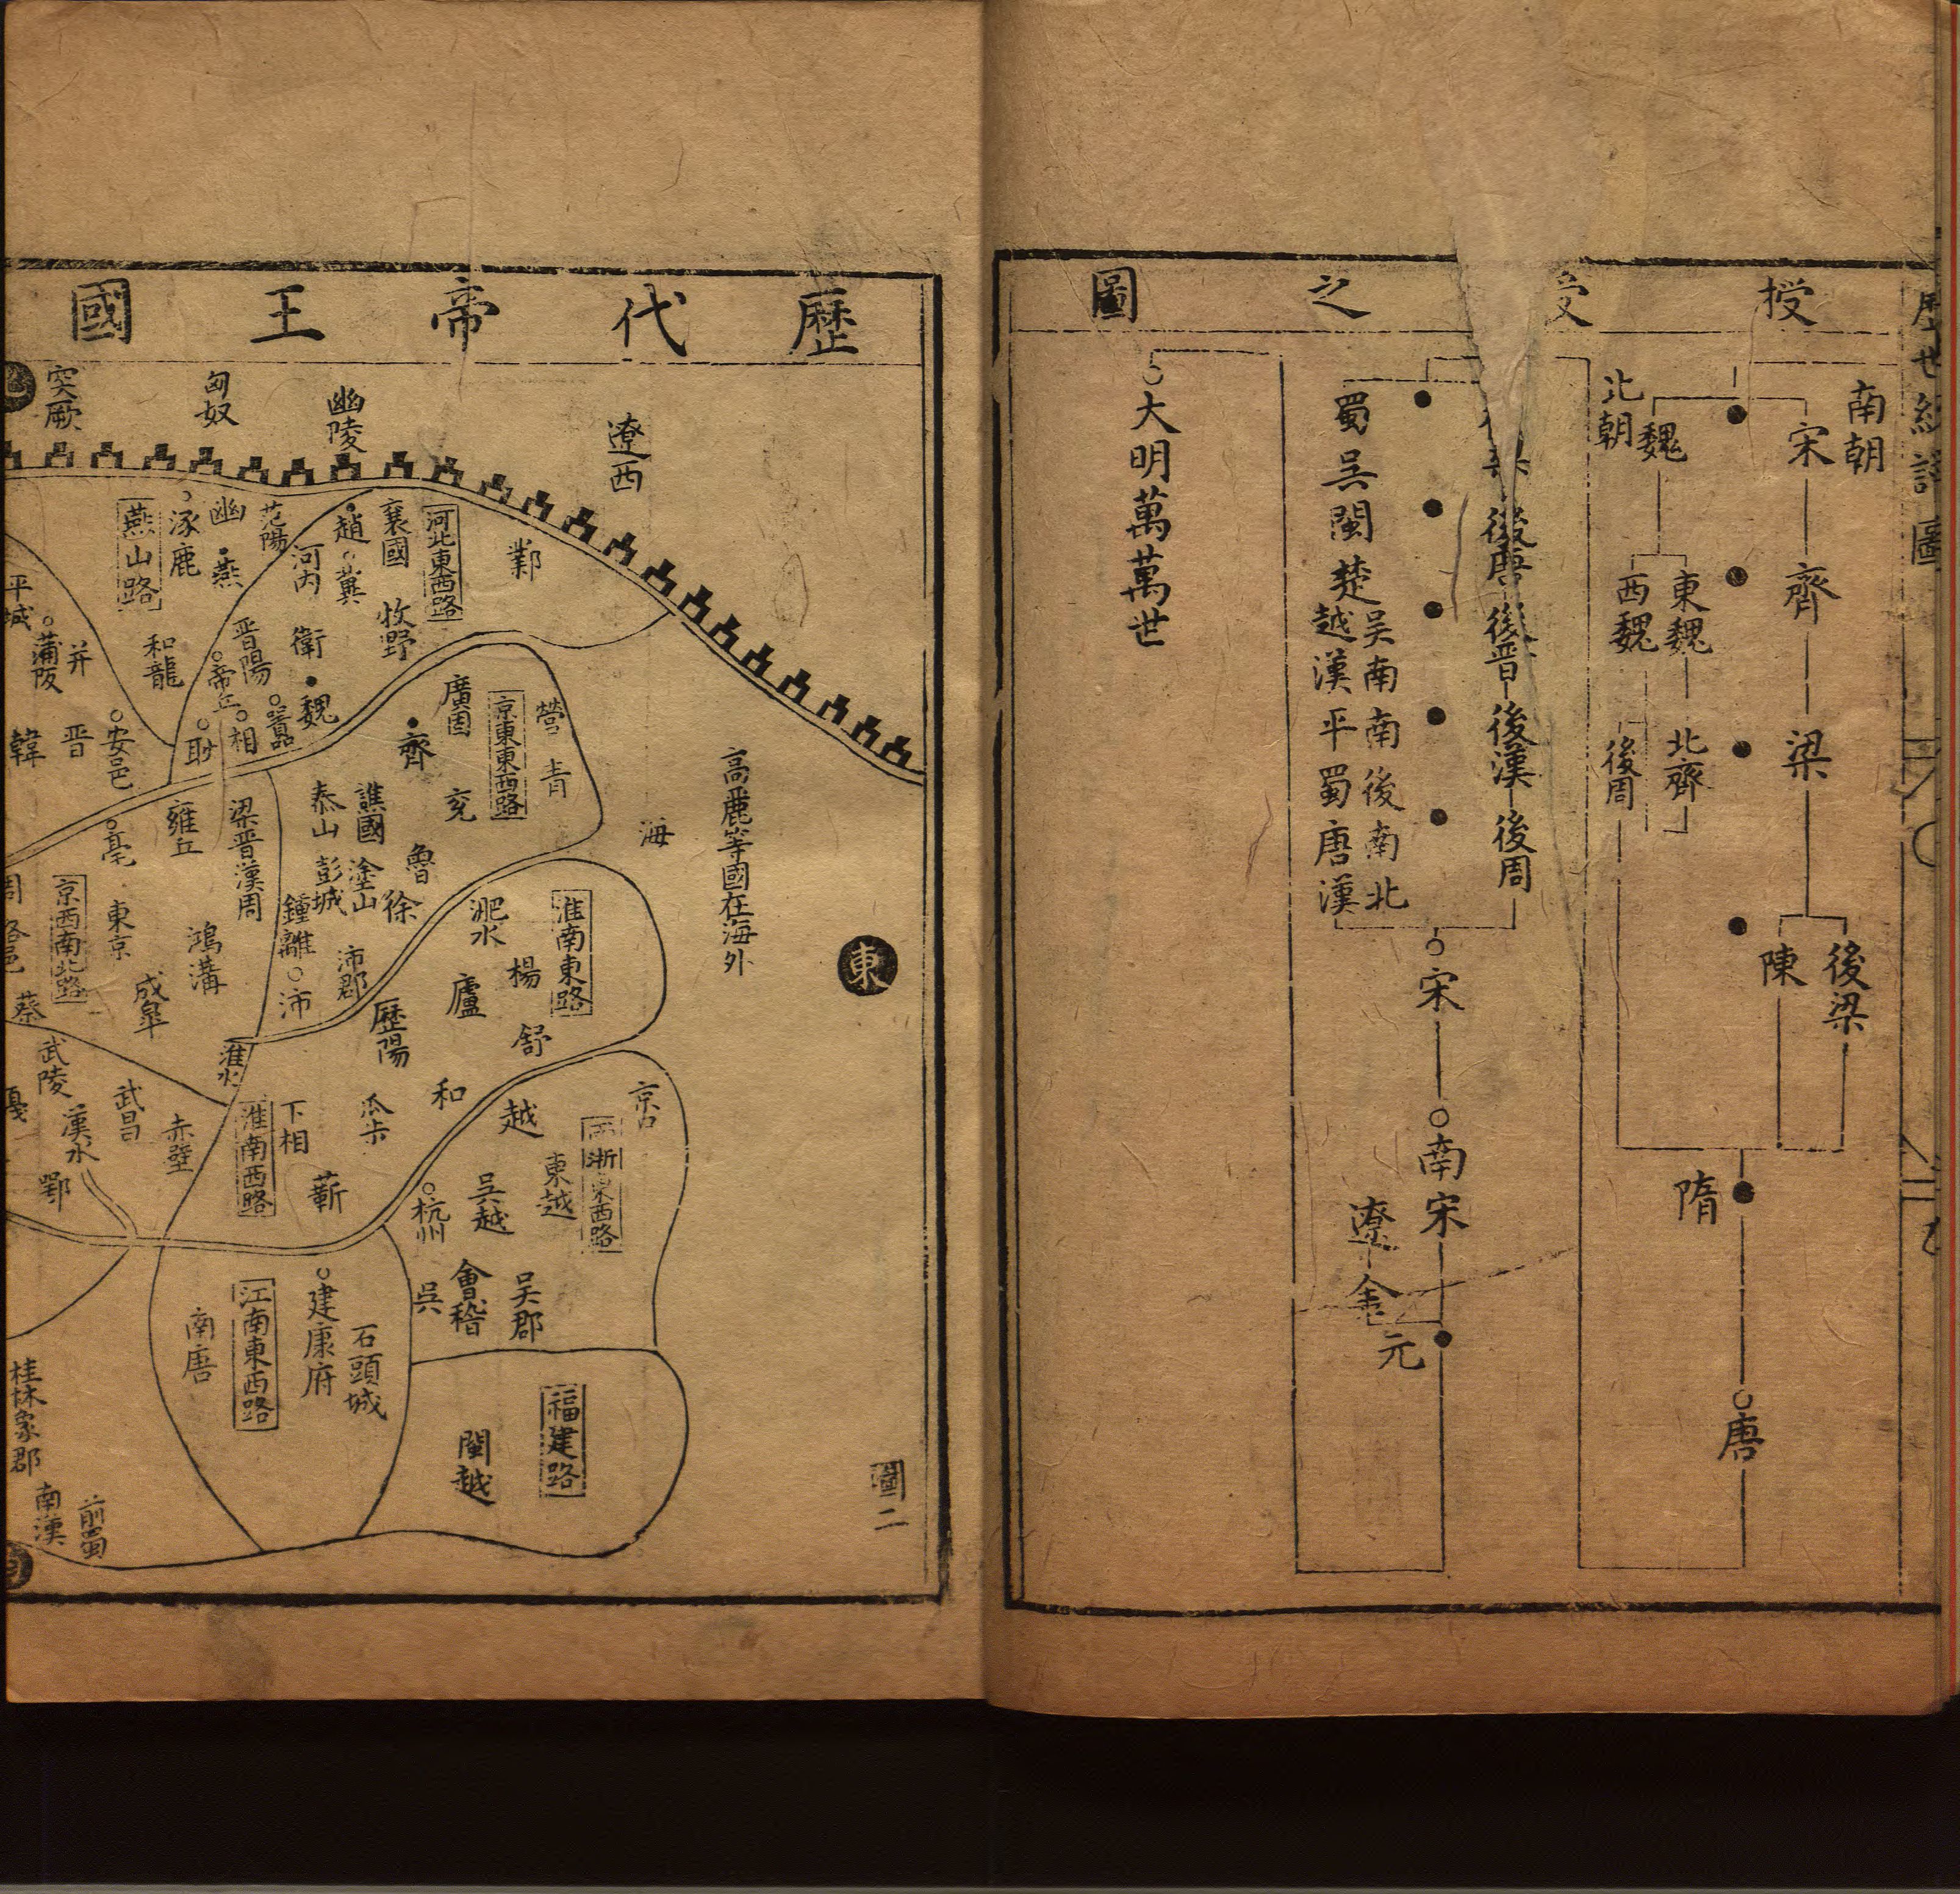 授受之圖
南朝
宋
齊
梁
後梁
陳
北朝
魏
東魏
西魏
北齊
後周
隋
唐
後唐
後晋
後漢
後周
蜀吳閩楚
吳南南後南北
越漢平蜀唐漢
宋
南宋
遼
金
元
大明萬萬世
歷代帝王國
遼西
幽陵
匈奴
突厥
鄴
河北東西路
襄國
牧野
趙
冀
河内
衛
魏
范陽
幽
燕
涿鹿
燕山路
晋陽
帝丘
相
囂
耿
和龍
平城
蒲阪
并
安邑
晋
韓
高麗等國在海外
海
東
營
青
京東東西路
廣固
齊
兗
魯
譙國
塗山
徐
泰山
彭城
鍾離
沛郡
沛
梁晋漢周
雍丘
鴻溝
亳
東京
成皐
京西南北路
周
蔡
淮南東路
楊
淝水
廬
舒
歷陽
和
淮水
瓜步
下相
淮南西路
蘄
武陵
漢水
武昌
赤壁
鄂
京口
浙東西路
越
東越
吳越
杭州
吳郡
會稽
吳
石頭城
建康府
江南東西路
南唐
福建路
閩越
桂林象郡
南漢
前蜀
圖二